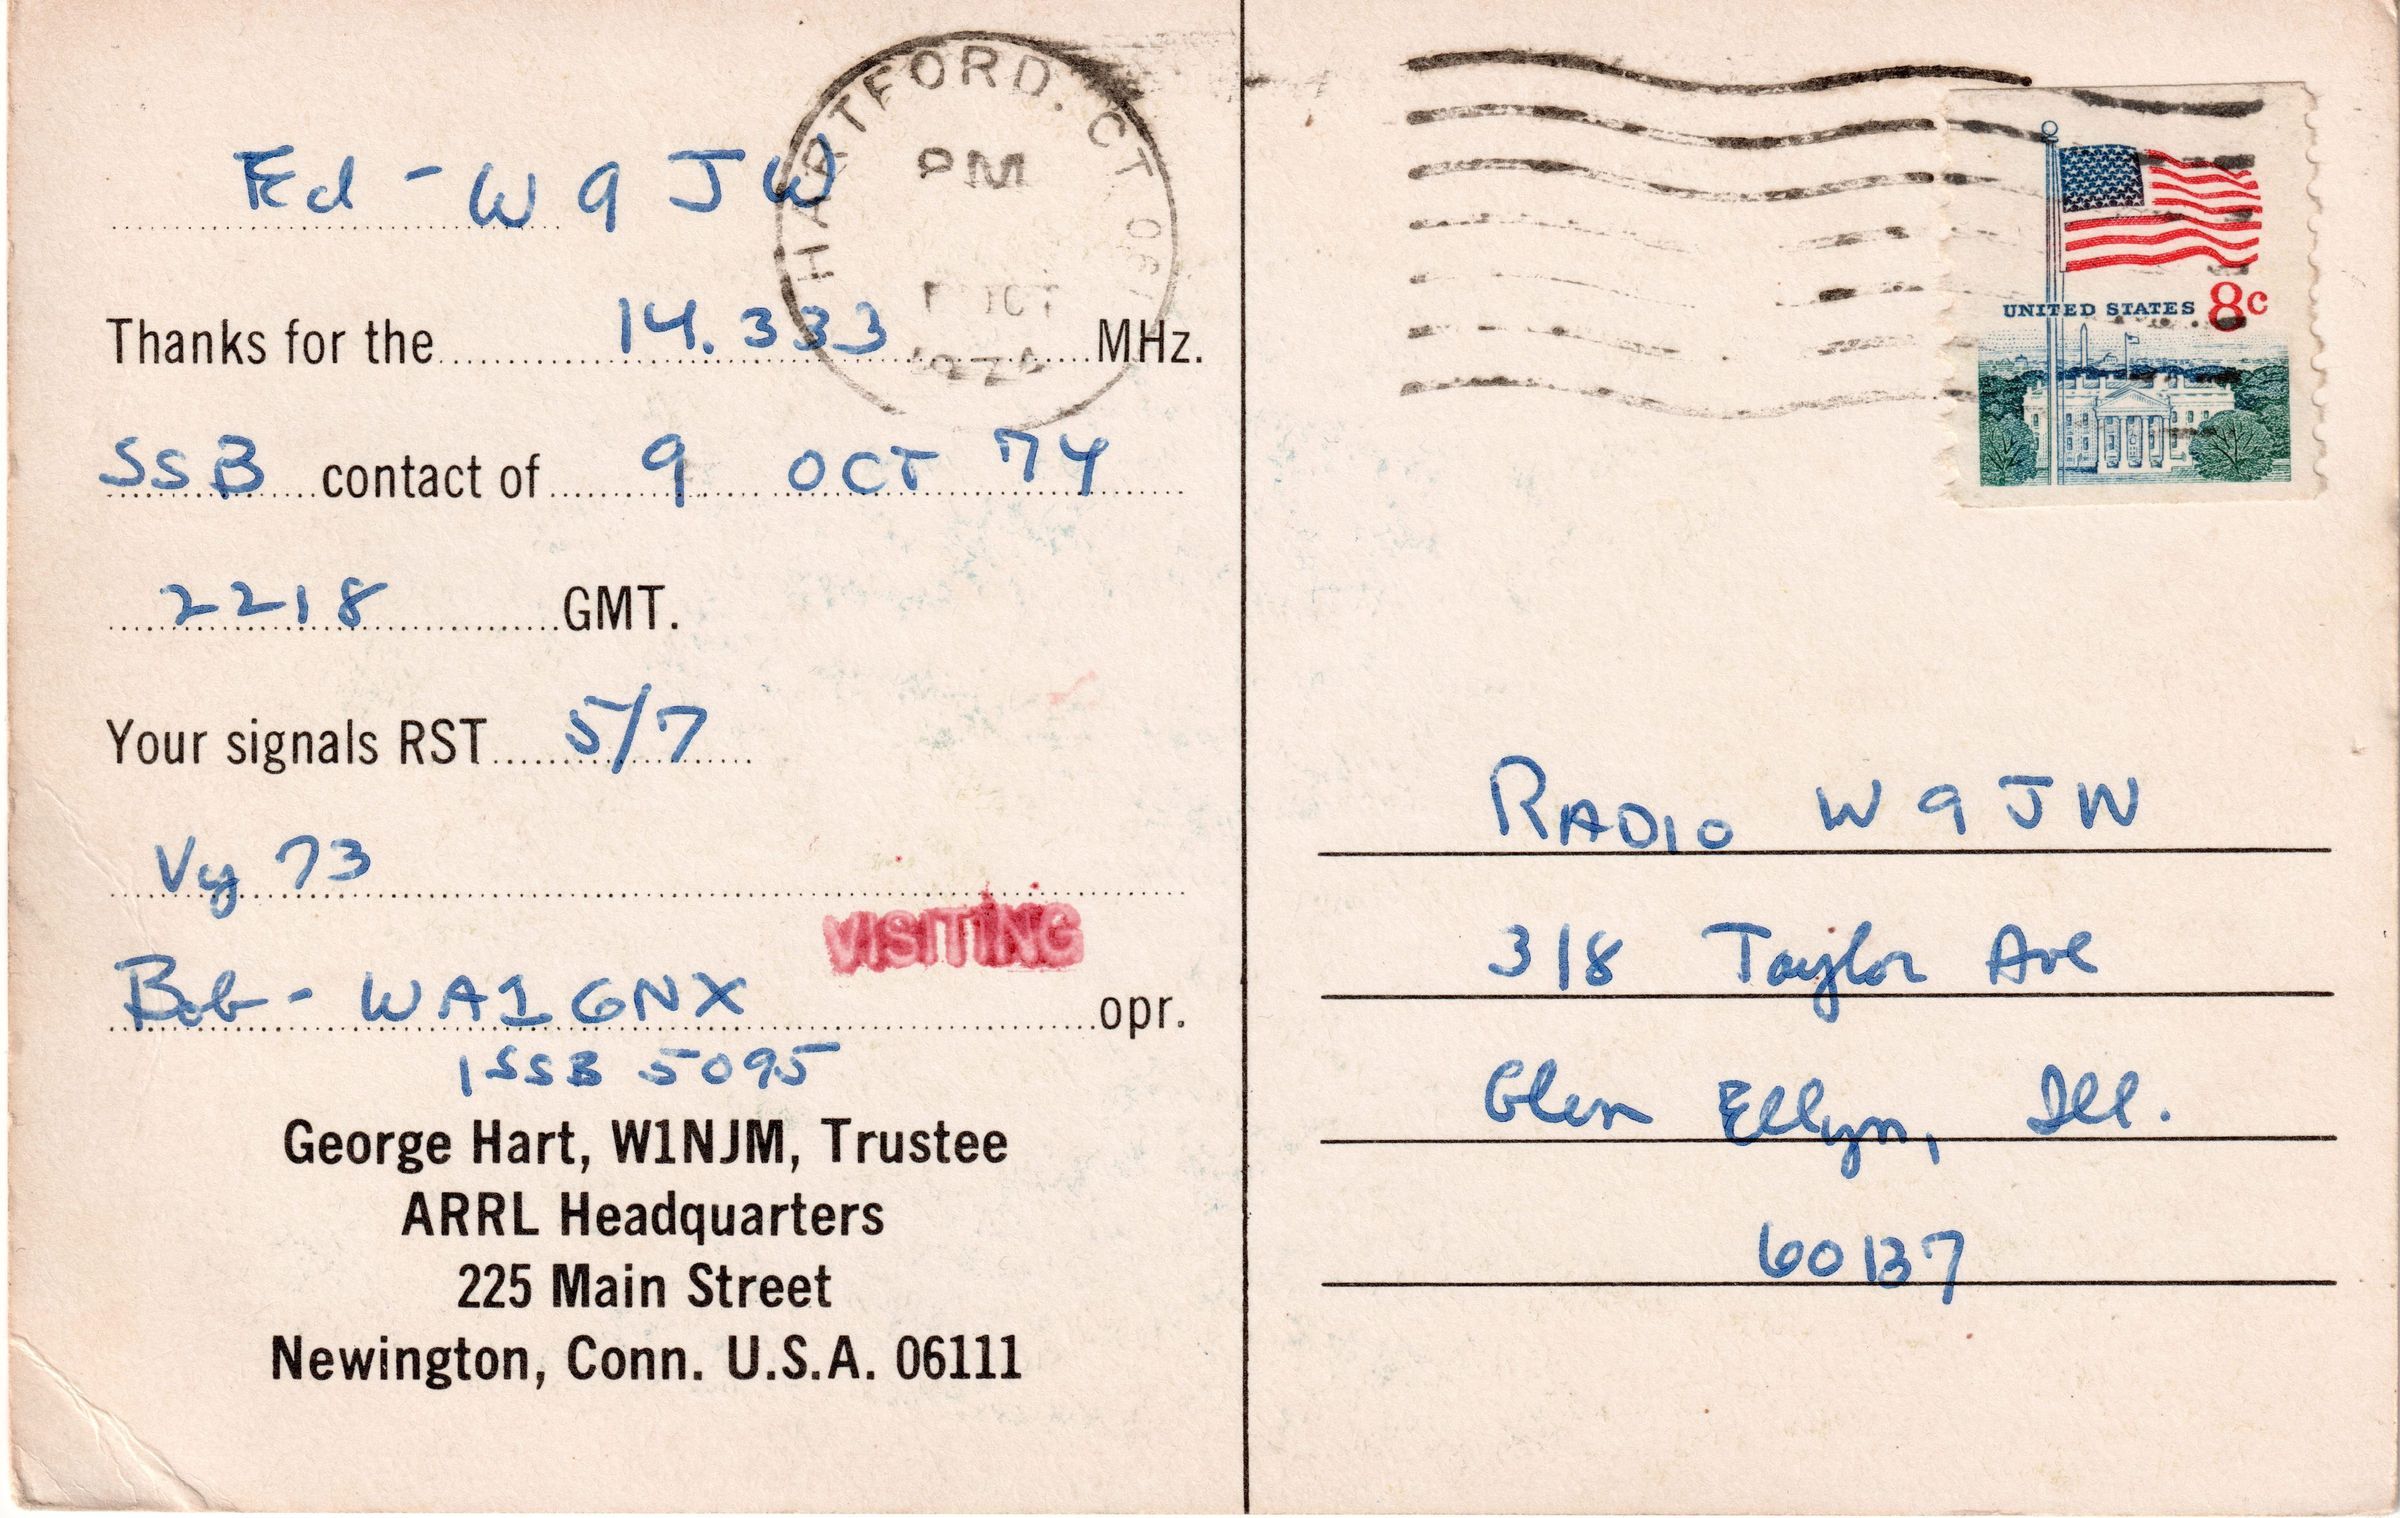 Ed - W9JW
HARTFORD. CT
PM
Thanks for the 14.333 MHz.
SSB contact of 9 OCT 74
2218 GMT.
Your signals RST 5/7
Vy 73
VISITING
Bob - WA1GNX opr.
ISSB 5095
George Hart, W1NJM, Trustee
ARRL Headquarters
225 Main Street
Newington, Conn. U.S.A. 06111
UNITED STATES 8c
RADIO W9JW
318 Taylor Ave
Glen Ellyn, Ill.
60137